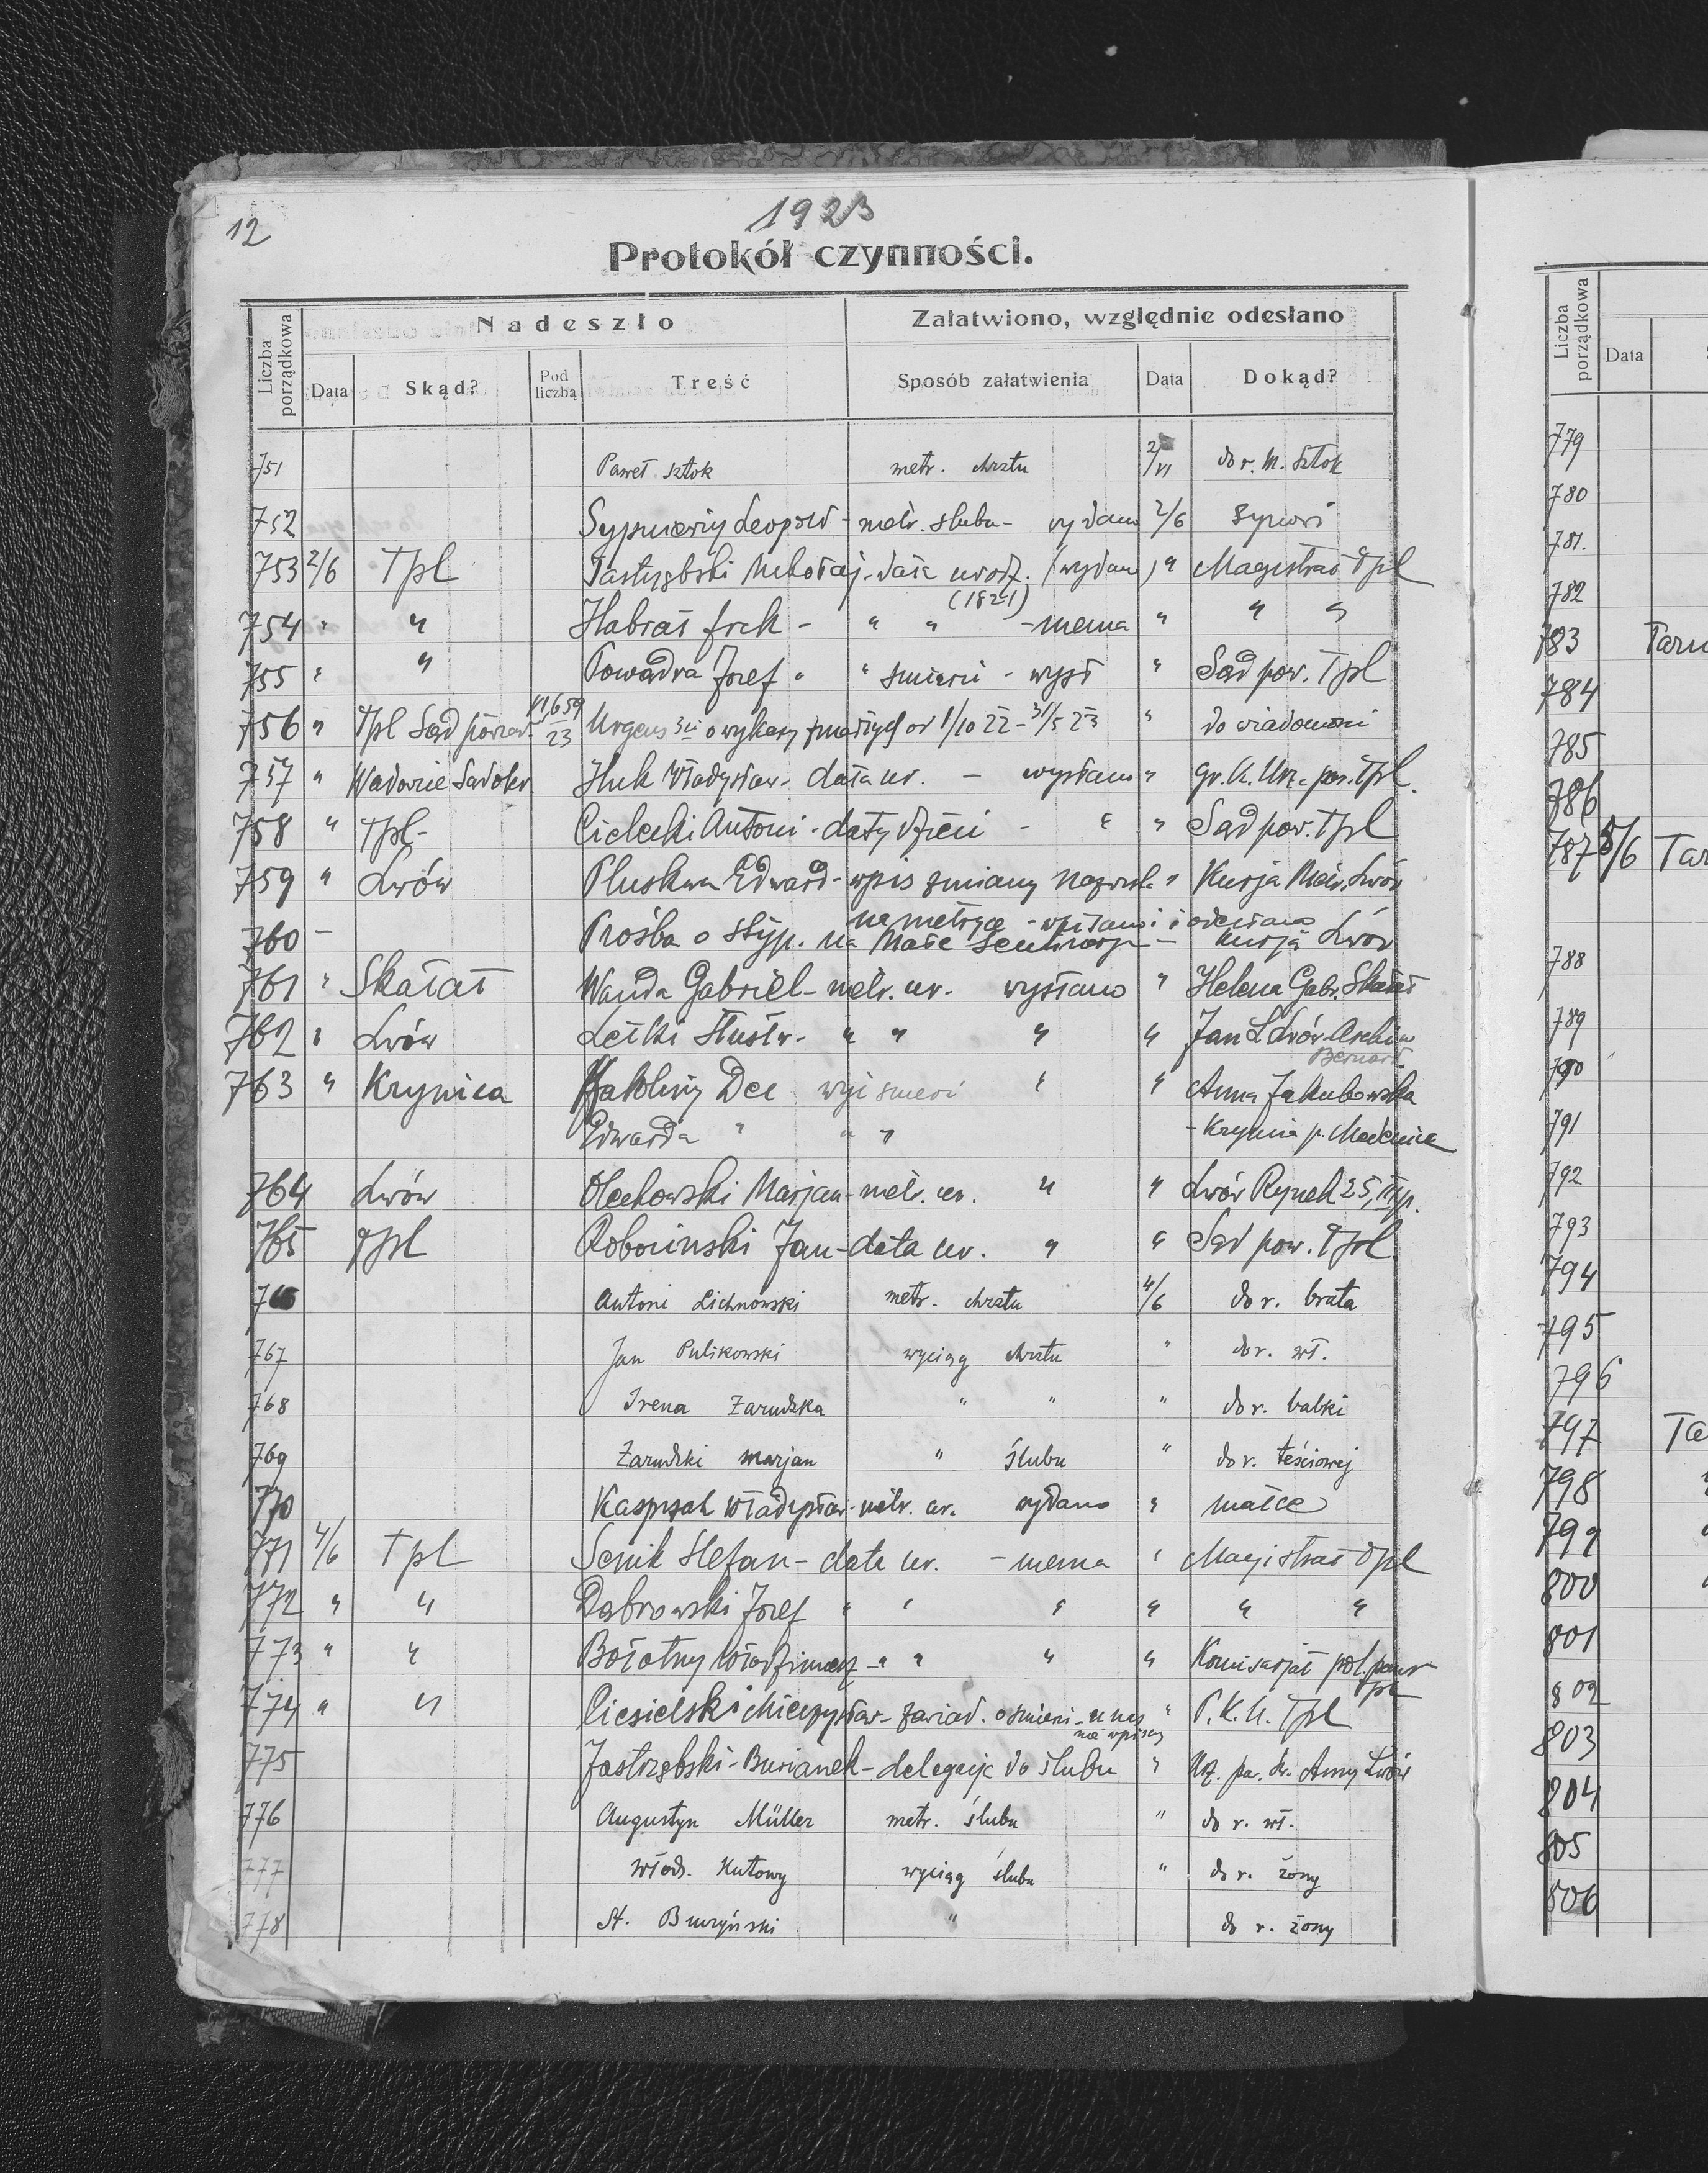 12
1923
Protokół czynności.
Liczba porządkowa
Nadeszło
Załatwiono, względnie odesłano
Data
Skąd?
Pod liczbą
Treść
Sposób załatwienia
Data
Dokąd?
751 Paweł Sztok metr. chrztu 2/VI do r. M. Sztok
752 Leopold - metr. ślubu - wydano 2/6 Synowi
753 2/6 Tpl Mikołaj - data urodz. (wydano) " Magistrat Tpl
(1821)
754 " " - " " - niema " " "
755 " " Powadra Józef " " śmierci - wysł " Sąd pow. Tpl
756 " Tpl Sąd powiat. VI,659/23 Urgens 3ci o wykazy zmarłych od 1/10 22 - 31/5 23 " do wiadomości
757 " Huk Władysław - data ur. - wysłano " Tpl.
758 " Tpl - Cielecki Antoni - daty dzieci - " " Sąd pow. Tpl
759 " Lwów Pluskwa Edward - wpis zmiany nazwiska " Kurja Metr. Lwów
na metryce - wpisano i odesłano
760 - Prośba o styp. na Małe Seminarjum - Kurja Lwów
761 " Skałat Wanda Gabriel - metr. ur. wysłano " Helena Gabr. Skałat
762 " Lwów " " " " Jan L Lwów Archiw
Bernard.
763 " Krynica Karoliny Dec wyc śmierci " " Anna Jakubowska
Edwarda " " " - Krynica
764 Lwów Olechowski Marjan - metr. ur. " " Lwów Rynek 25, III p.
765 Tpl Jan - data ur. " " Sąd pow. Tpl.
766 Antoni Lichnowski metr. chrztu 4/6 do r. brata
767 Jan Pulikowski wyciąg chrztu " do r. wł.
768 Irena Zarudzka " " " do r. babki
769 Zarudzki Marjan " ślubu " do r. teściowej
770 Kasprzak Władysław - metr. ur. wydano " matce
771 4/6 Tpl Senik Stefan - data ur. - niema " Magistrat Tpl
772 " " Dąbrowski Józef " " " " " "
773 " " Bołotny Włodzimierz - " " " " Komisarjat pol. państw
Tpl
774 " " Ciesielski Mieczysław - zawiad. o śmierci - u nas " P.K.U. Tpl
nie wpisany
775 Jastrzębski - Burianek - delegacja do ślubu " Urz. pa. św. Anny Lwów
776 Augustyn Müller metr. ślubu " do r. wł.
777 Włodz. Hutowy wyciąg ślubu " do r. żony
778 St. Burzyński " do r. żony
Liczba porządkowa
Data
779
780
781.
782
783 Tarn
784
785
786
787 5/6 Tar
788
789
790
791
792
793
794
795
796
797 Ta
798
799
800
801
802
803
804
805
806